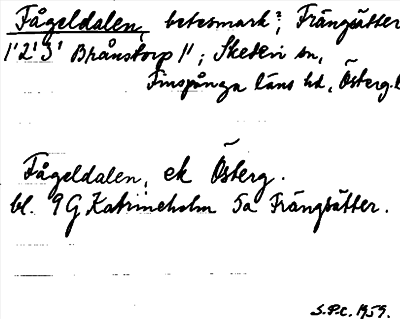 Fågeldalen, betesmark?; Frängsätter
1¹ 2¹ 3¹ Brånstorp 1¹; Skedevi sn,
Finspånga läns hd, Österg. l
Fågeldalen, ek Österg.
bl. 9G Katrineholm 5a Frängsätter.
S.P.C. 1959.